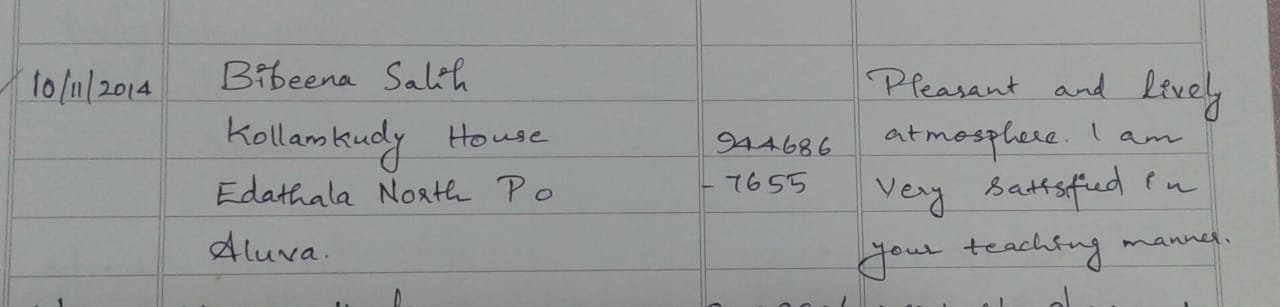 10/11/2014
Bibeena Salih
Kollamkudy House
Edathala North Po
Aluva.
944686
- 7655
Pleasant and lively
atmosphere. I am
Very satisfied in
your teaching manner.